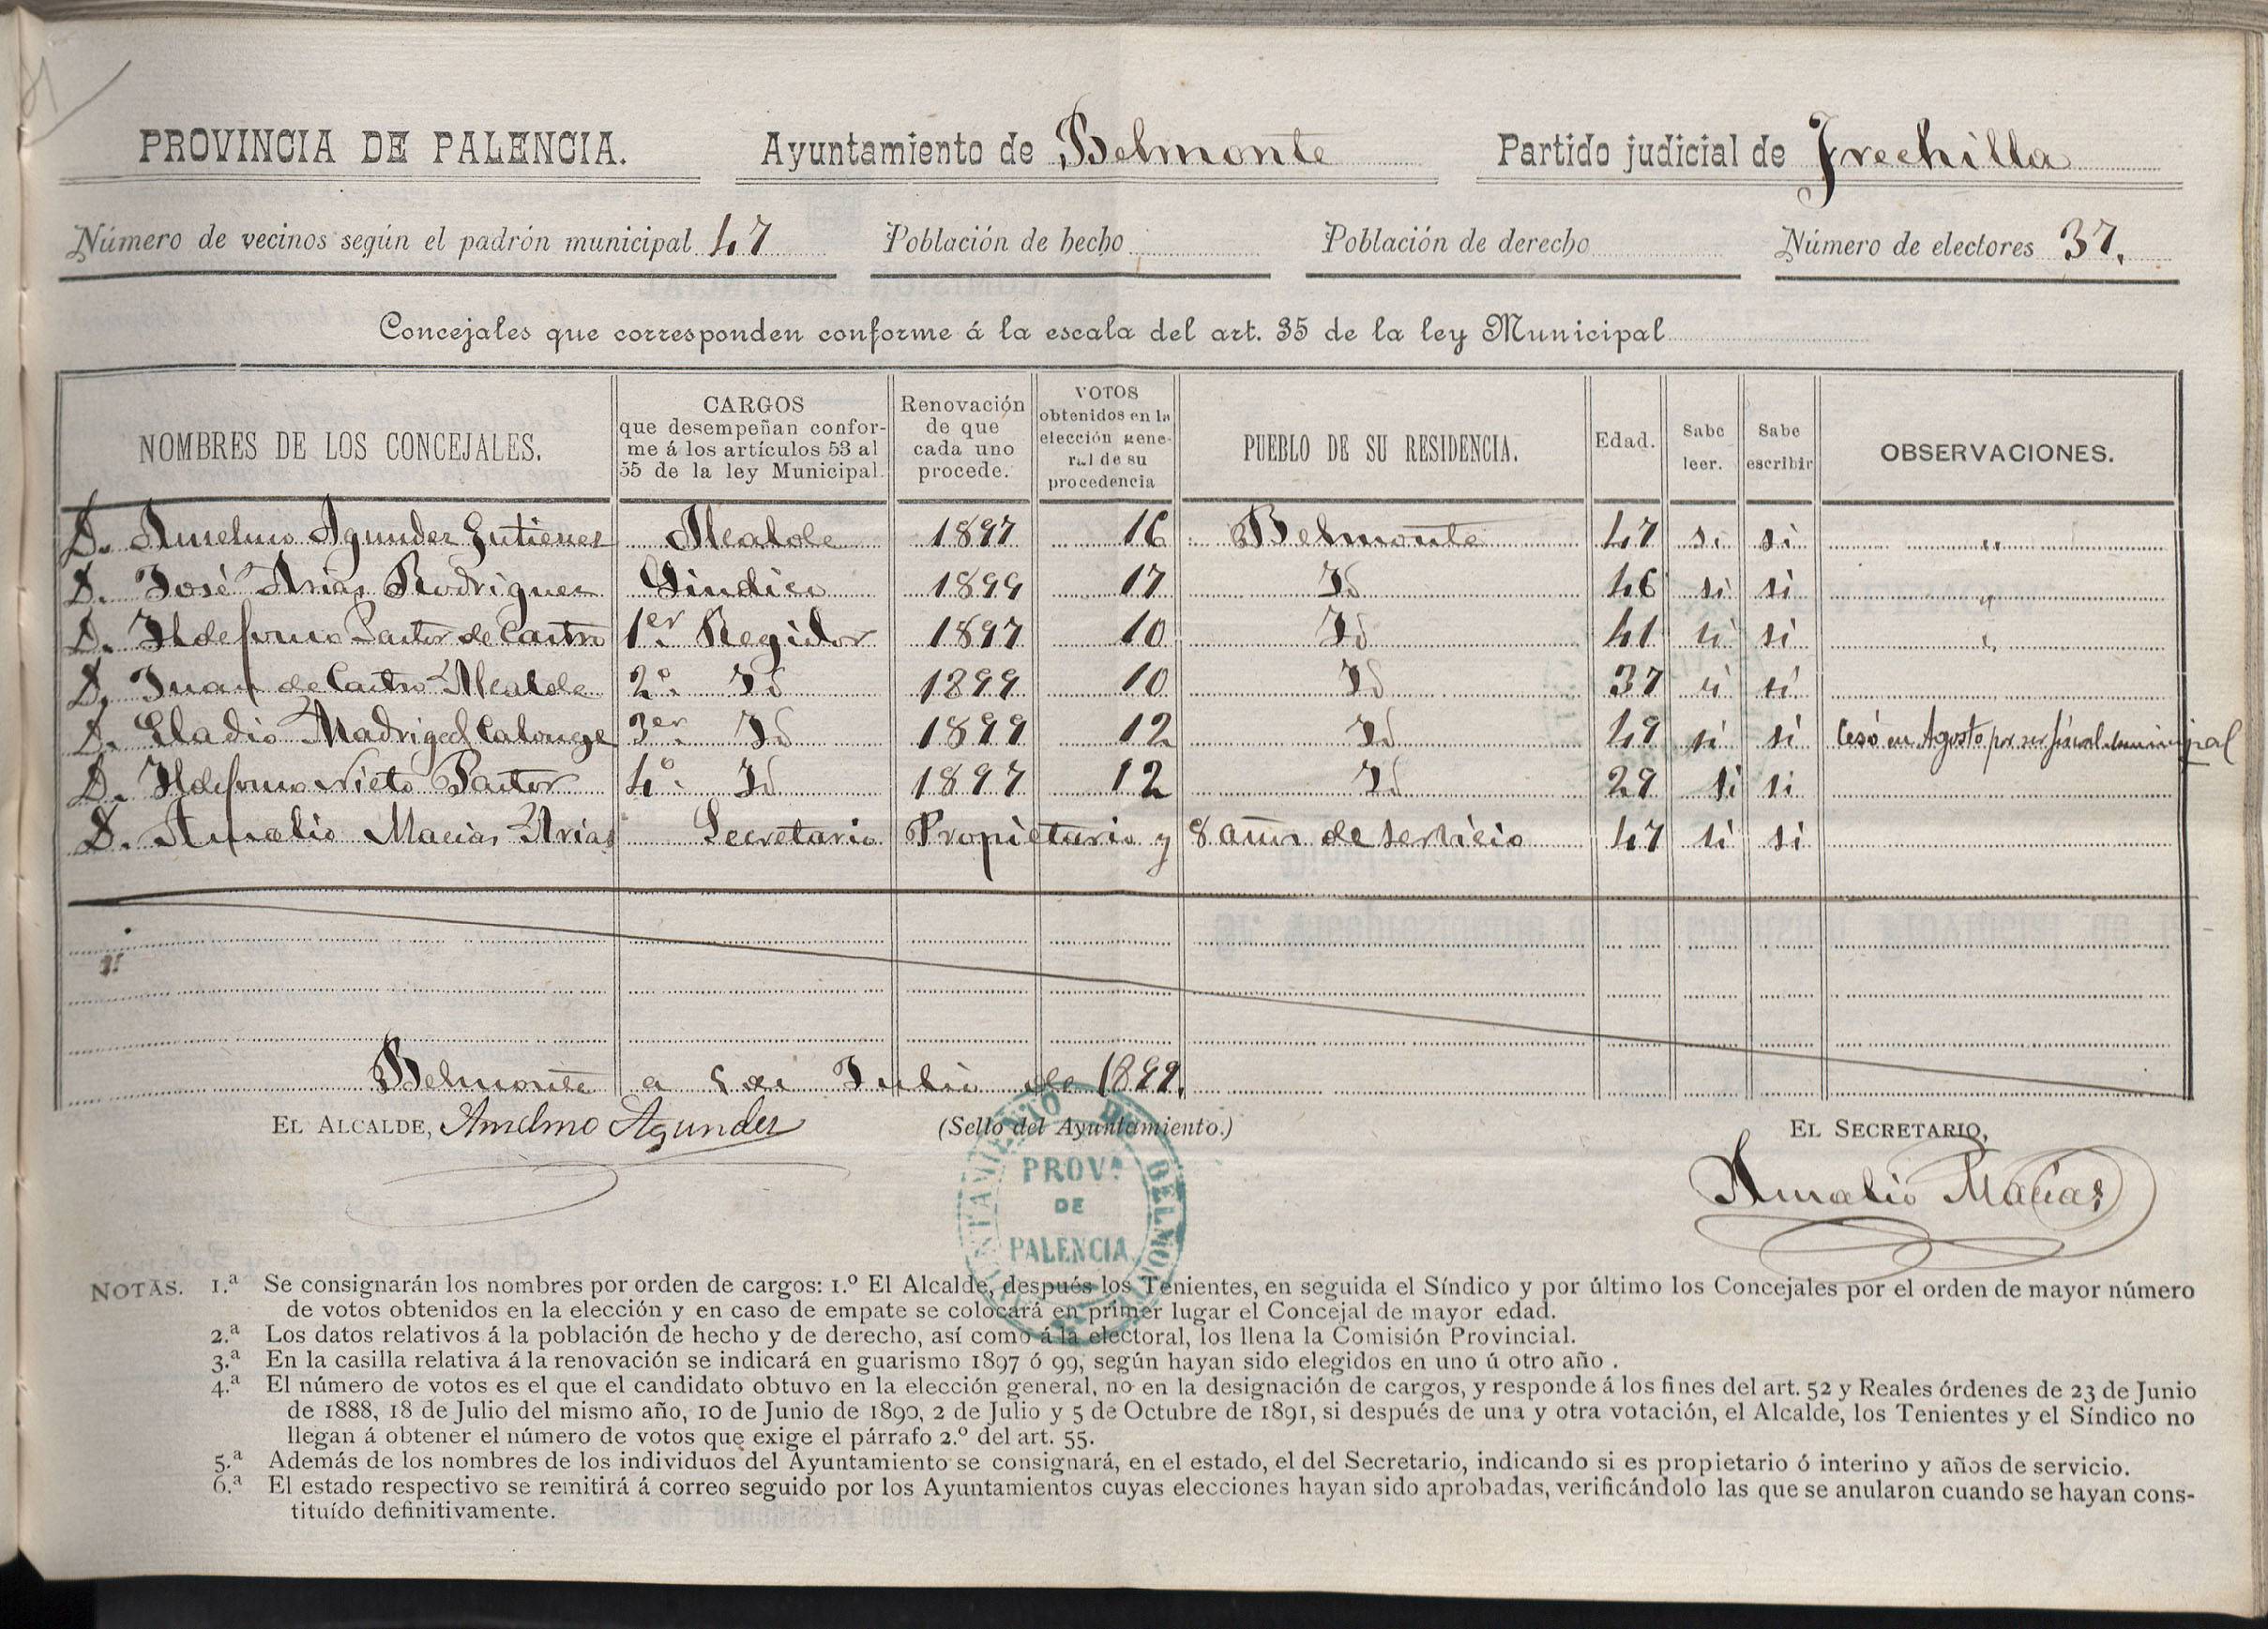 PROVINCIA DE PALENCIA. Ayuntamiento de Belmonte Partido judicial de Frechilla
Número de vecinos según el padrón municipal 47 Población de hecho Población de derecho Número de electores 37.
Concejales que corresponden conforme á la escala del art. 35 de la ley Municipal
NOMBRES DE LOS CONCEJALES. CARGOS que desempeñan conforme á los artículos 53 al 55 de la ley Municipal. Renovación de que cada uno procede. VOTOS obtenidos en la elección general de su procedencia PUEBLO DE SU RESIDENCIA. Edad. Sabe leer. Sabe escribir OBSERVACIONES.
D. Anselmo Agundez Gutierrez Alcalde 1897 16 Belmonte 47 si si "
D. José Arias Rodriguez Sindico 1899 17 Id 46 si si "
D. Ildefonso Pastor de Castro 1er Regidor 1897 10 Id 41 si si "
D. Juan de Castro Alcalde 2º Id 1899 10 Id 37 si si
D. Eladio Madrigal Calonge 3er Id 1899 12 Id 49 si si Cesó en Agosto por ser fiscal municipal
D. Ildefonso Nieto Pastor 4º Id 1897 12 Id 29 si si
D. Amalio Macias Arias Secretario Propietario y 8 años de servicio 47 si si
Belmonte a de Julio de 1899.
EL ALCALDE, Anselmo Agundez (Sello del Ayuntamiento.) EL SECRETARIO,
Amalio Macías
AYUNTAMIENTO DE BELMONTE
PROVA
DE
PALENCIA
NOTAS. 1.ª Se consignarán los nombres por orden de cargos: 1.º El Alcalde, después los Tenientes, en seguida el Síndico y por último los Concejales por el orden de mayor número
de votos obtenidos en la elección y en caso de empate se colocará en primer lugar el Concejal de mayor edad.
2.ª Los datos relativos á la población de hecho y de derecho, así como á la electoral, los llena la Comisión Provincial.
3.ª En la casilla relativa á la renovación se indicará en guarismo 1897 ó 99, según hayan sido elegidos en uno ú otro año .
4.ª El número de votos es el que el candidato obtuvo en la elección general, no en la designación de cargos, y responde á los fines del art. 52 y Reales órdenes de 23 de Junio
de 1888, 18 de Julio del mismo año, 10 de Junio de 1890, 2 de Julio y 5 de Octubre de 1891, si después de una y otra votación, el Alcalde, los Tenientes y el Síndico no
llegan á obtener el número de votos que exige el párrafo 2.º del art. 55.
5.ª Además de los nombres de los individuos del Ayuntamiento se consignará, en el estado, el del Secretario, indicando si es propietario ó interino y años de servicio.
6.ª El estado respectivo se remitirá á correo seguido por los Ayuntamientos cuyas elecciones hayan sido aprobadas, verificándolo las que se anularon cuando se hayan cons-
tituído definitivamente.